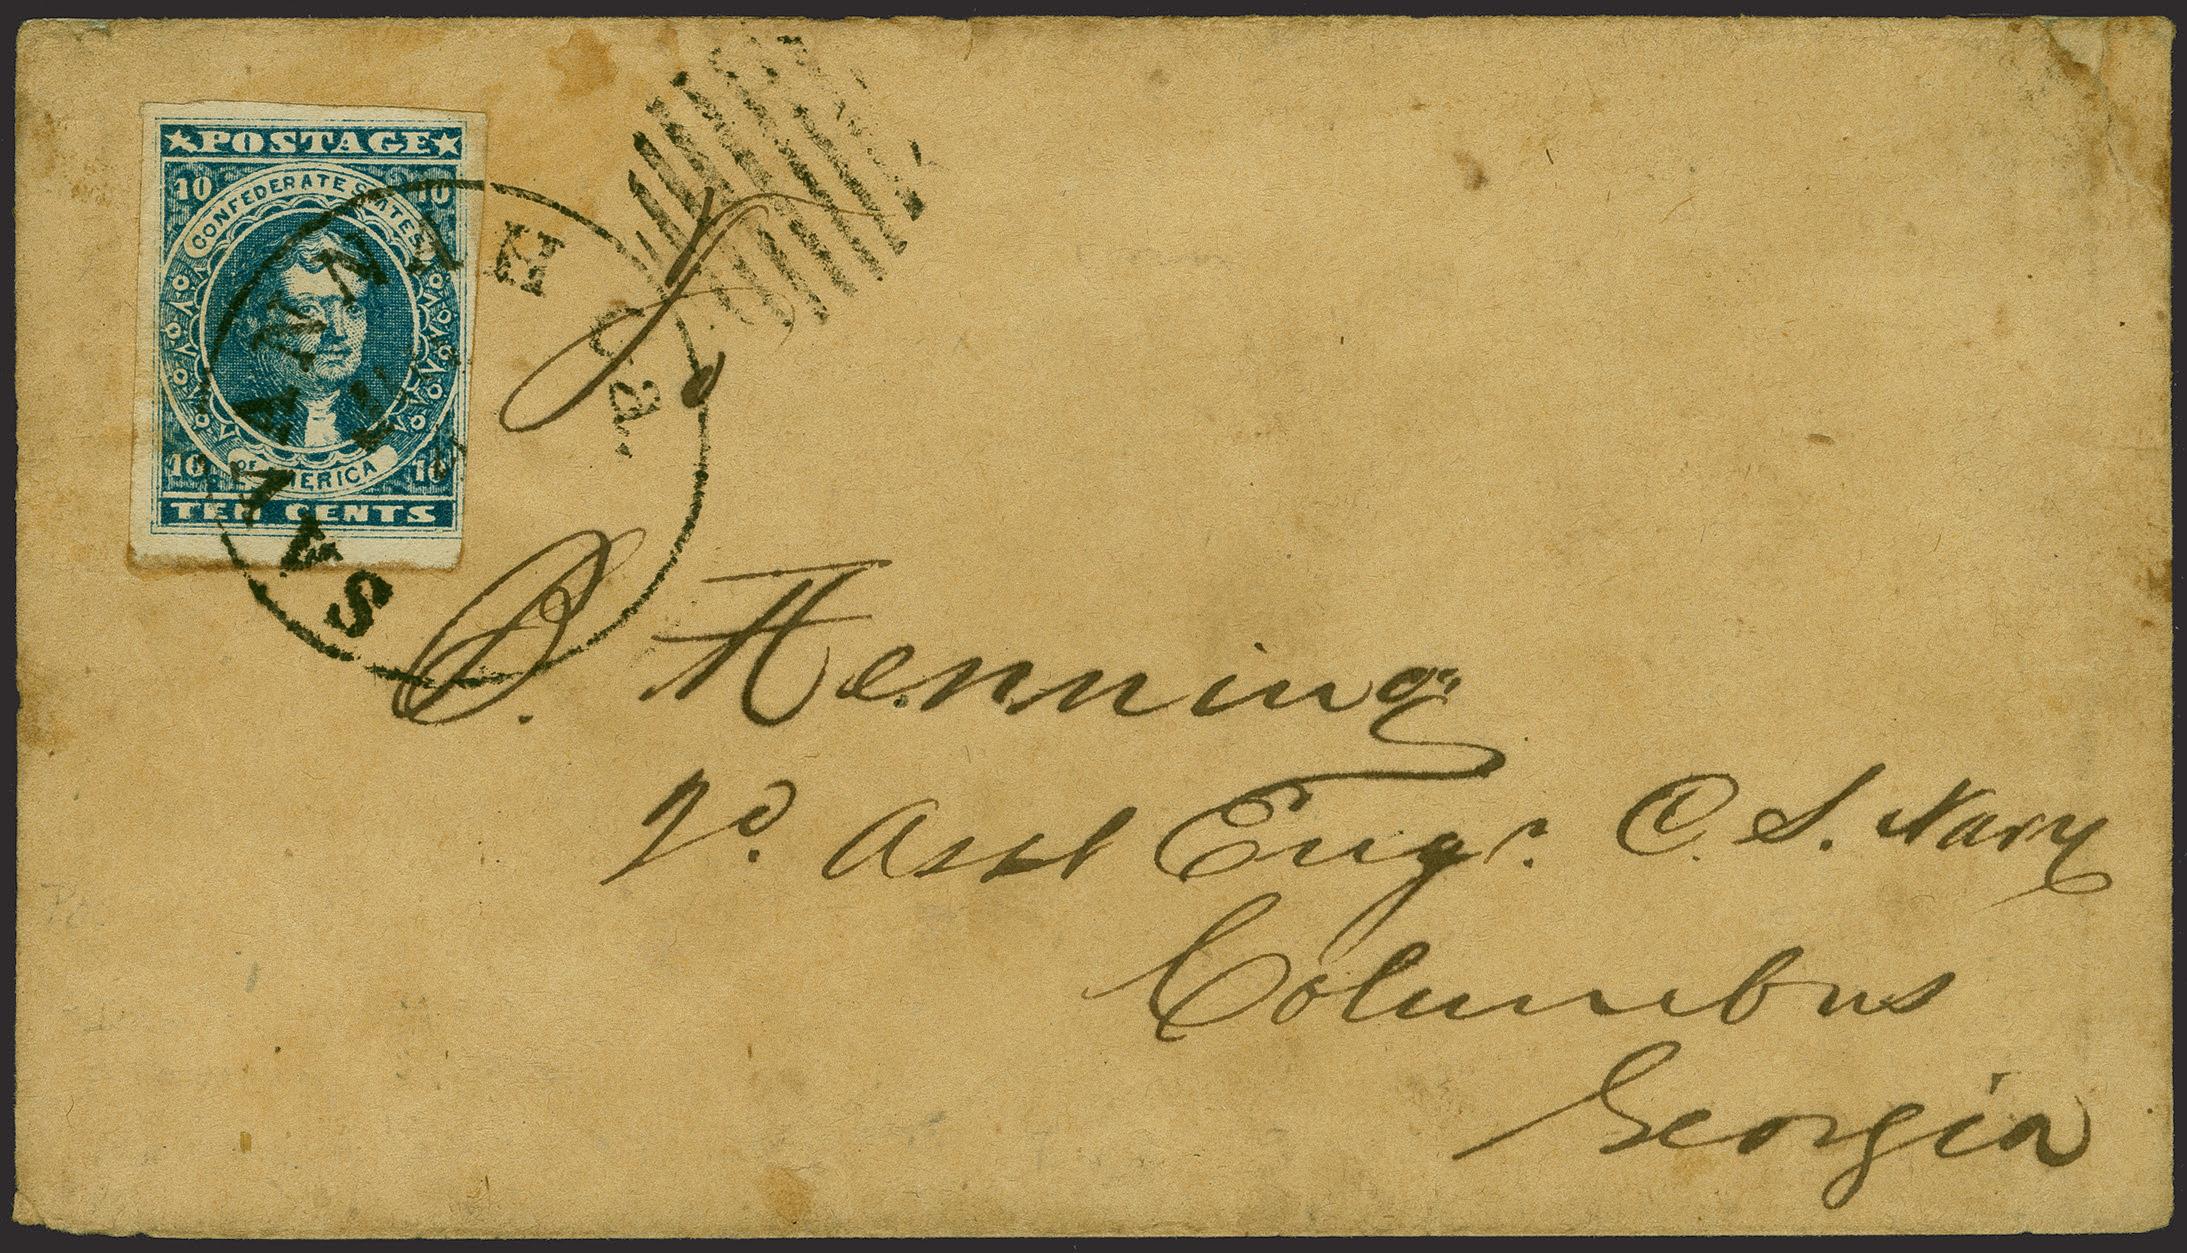 POSTAGE
10 10
CONFEDERATE STATES
OF AMERICA
10 10
TEN CENTS
SAVANNAH Ga.
J
B. Henning
2d. Asst Engr. C. S. Navy
Columbus
Georgia